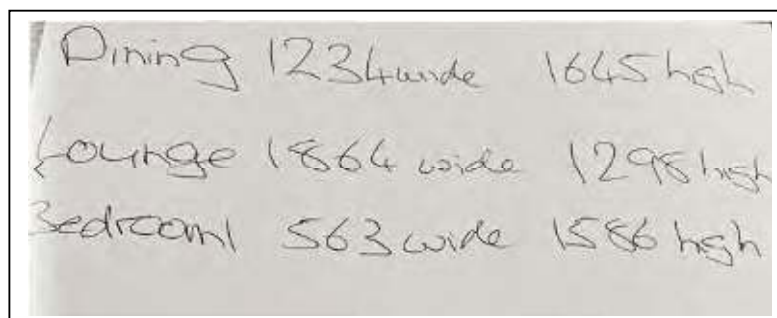 Dining 1234 wide 1645 high
Lounge 1864 wide 1298 high
Bedroom1 563 wide 1586 high